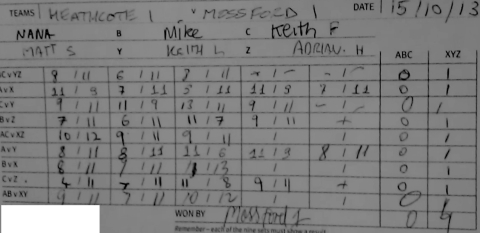 TEAMS HEATHCOTE 1 V MOSSFORD 1 DATE 15/10/13
NANA B Mike C Keith F
MATT S Y KEITH L Z ADRIAN. H ABC XYZ
9 / 11 6 / 11 8 / 11 0 1
AvX 11 / 9 7 / 11 5 / 11 11 / 9 7 / 11 0 1
CvY 9 / 11 11 / 9 13 / 11 9 / 11 0 1
BvZ 7 / 11 6 / 11 11 / 7 9 / 11 0 1
ACvXZ 10 / 12 9 / 11 9 / 11 0 1
AvY 8 / 11 11 / 6 11 / 9 8 / 11 0 1
BvX 8 / 11 0 1
CvZ 4 / 11 7 / 11 11 / 8 9 / 11 0 1
ABvXY 9 / 11 7 / 11 10 / 12 0 1
WON BY Mossford 1 0 9
Remember - each of the nine sets must show a result